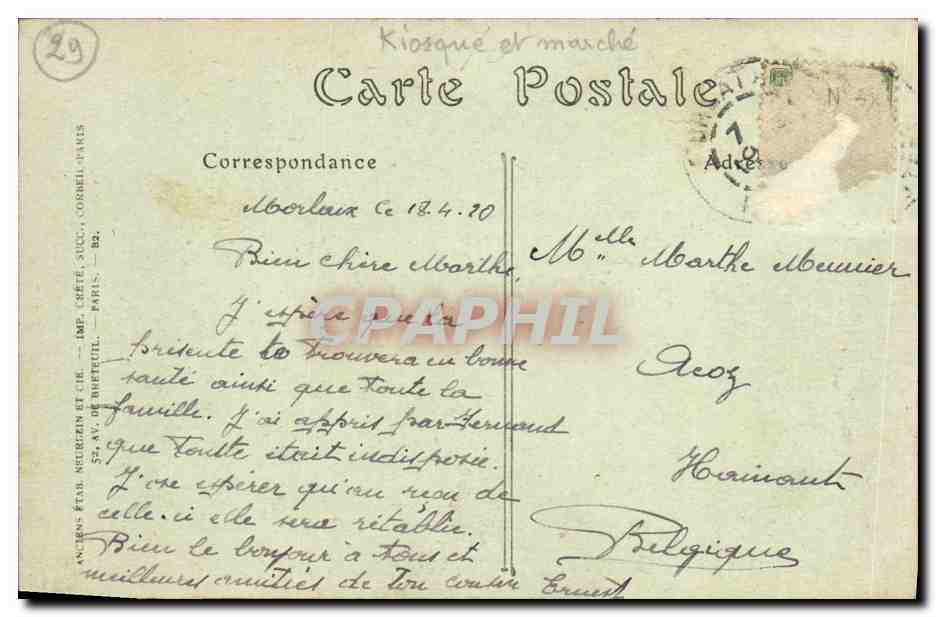 29
Kiosque et marché
Carte Postale
Correspondance
Adresse
Morlaix Ce 18.4.20
Bien chère Marthe,
J'espère que la
présente te trouvera en bonne
santé ainsi que toute la
famille. J'ai appris par Fernand
que toutte était indisposée.
J'ose espérer qu'au reçu de
celle-ci elle sera rétablie.
Bien le bonjour à tous et
meilleures amitiés de ton cousin Ernest
Mlle Marthe Meunier
Acoz
Hainaut
Belgique
ANCIENS ÉTAB. NEURDEIN ET CIE. — IMP. CRÉTÉ, SUCC., CORBEIL-PARIS
52, AV. DE BRETEUIL. — PARIS. — B2.
CPAPHIL